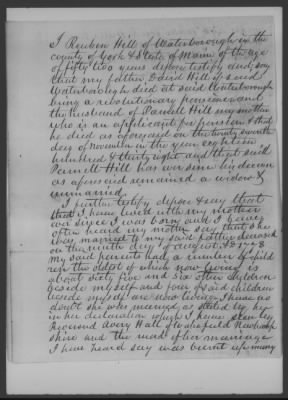 I Reuben Hill of Waterborough in the
county of York & State of Maine of the age
of fifty two years depose testify and say
that my father David Hill of said
Waterborough died at said Waterborough
being a revolutionary pensioner and
the husband of Parnell Hill my mother
who is an applicant for pension & that
he died as aforesaid on the twenty seventh
day of November in the year eighteen
hundred & thirty eight and that said
Parnell Hill has ever since his decease
as aforesaid remained a widow &
unmarried.
I further testify depose & say that
that I have lived with my mother
ever since I was born and I have
often heard my mother say that she
was married to my said father deceased
on the ninth day of August 1778
my said parents had a number of child
ren the oldest of which now living is
about sixty five and six other children
beside myself and four of said children
beside myself are now living I have no
doubt she was married as stated by her
in her declaration which I have seen by
Reverend Avery Hall of Wakefield New Hamp
shire and the record of her marriage
I have heard say was burnt up many